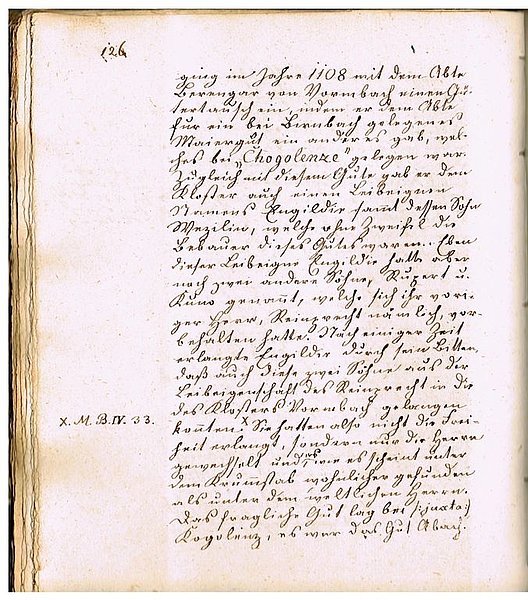 126
ging im Jahre 1108 mit dem Abte
Berengar von Vormbach einen Gü-
tertausch ein, indem er dem Abte
für ein bei Birnbach gelegenes
Maiergut ein anderes gab, wel-
ches bei „Chogolenze" gelegen war.
Zugleich mit diesem Gute gab er dem
Kloster auch einen Leibeignen
Namens Engildie sammt dessen Sohn
Wezilin, welche ohne Zweifel die
Bebauer dieses Gutes waren. Eben
dieser Leibeigne Engildie hatte aber
noch zwei andere Söhne, Rupert u.
Kuno genannt, welche sich ihr vori-
ger Herr, Reinprecht nämlich, vor-
behalten hatte. Nach einiger Zeit
erlangte Engildie durch sein Bitten,
daß auch diese zwei Söhne aus der
Leibeigenschaft des Reinprecht in die
des Klosters Vormbach gelangen
konnten. x Sie hatten also nicht die Frei-
X. M. B. IV. 33.
heit erlangt, sondern nur die Herrn
gewechselt und es wie es scheint unter
dem Krummstab wohnlicher gefunden
als unter dem weltlichen Herrn.
Das fragliche Gut lag bei /:juxta:/
Kogolenz, es war das Gut